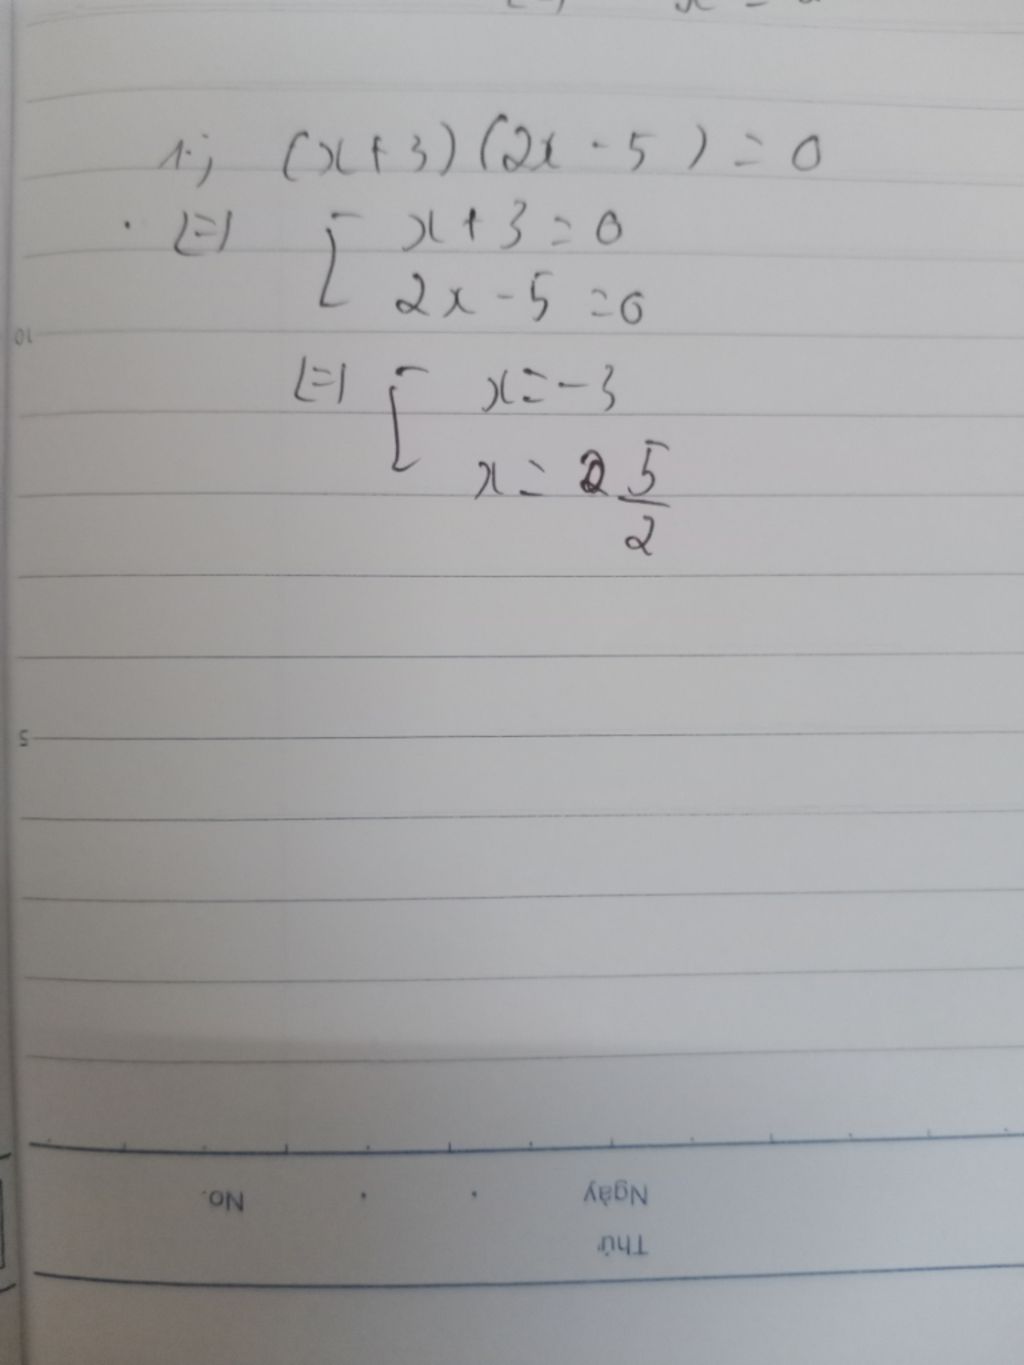 1.; (x+3)(2x-5) = 0
<=> [ x+3=0
2x-5=0
<=> [ x=-3
x= 5/2
10
5
No.
Ngày
Thứ